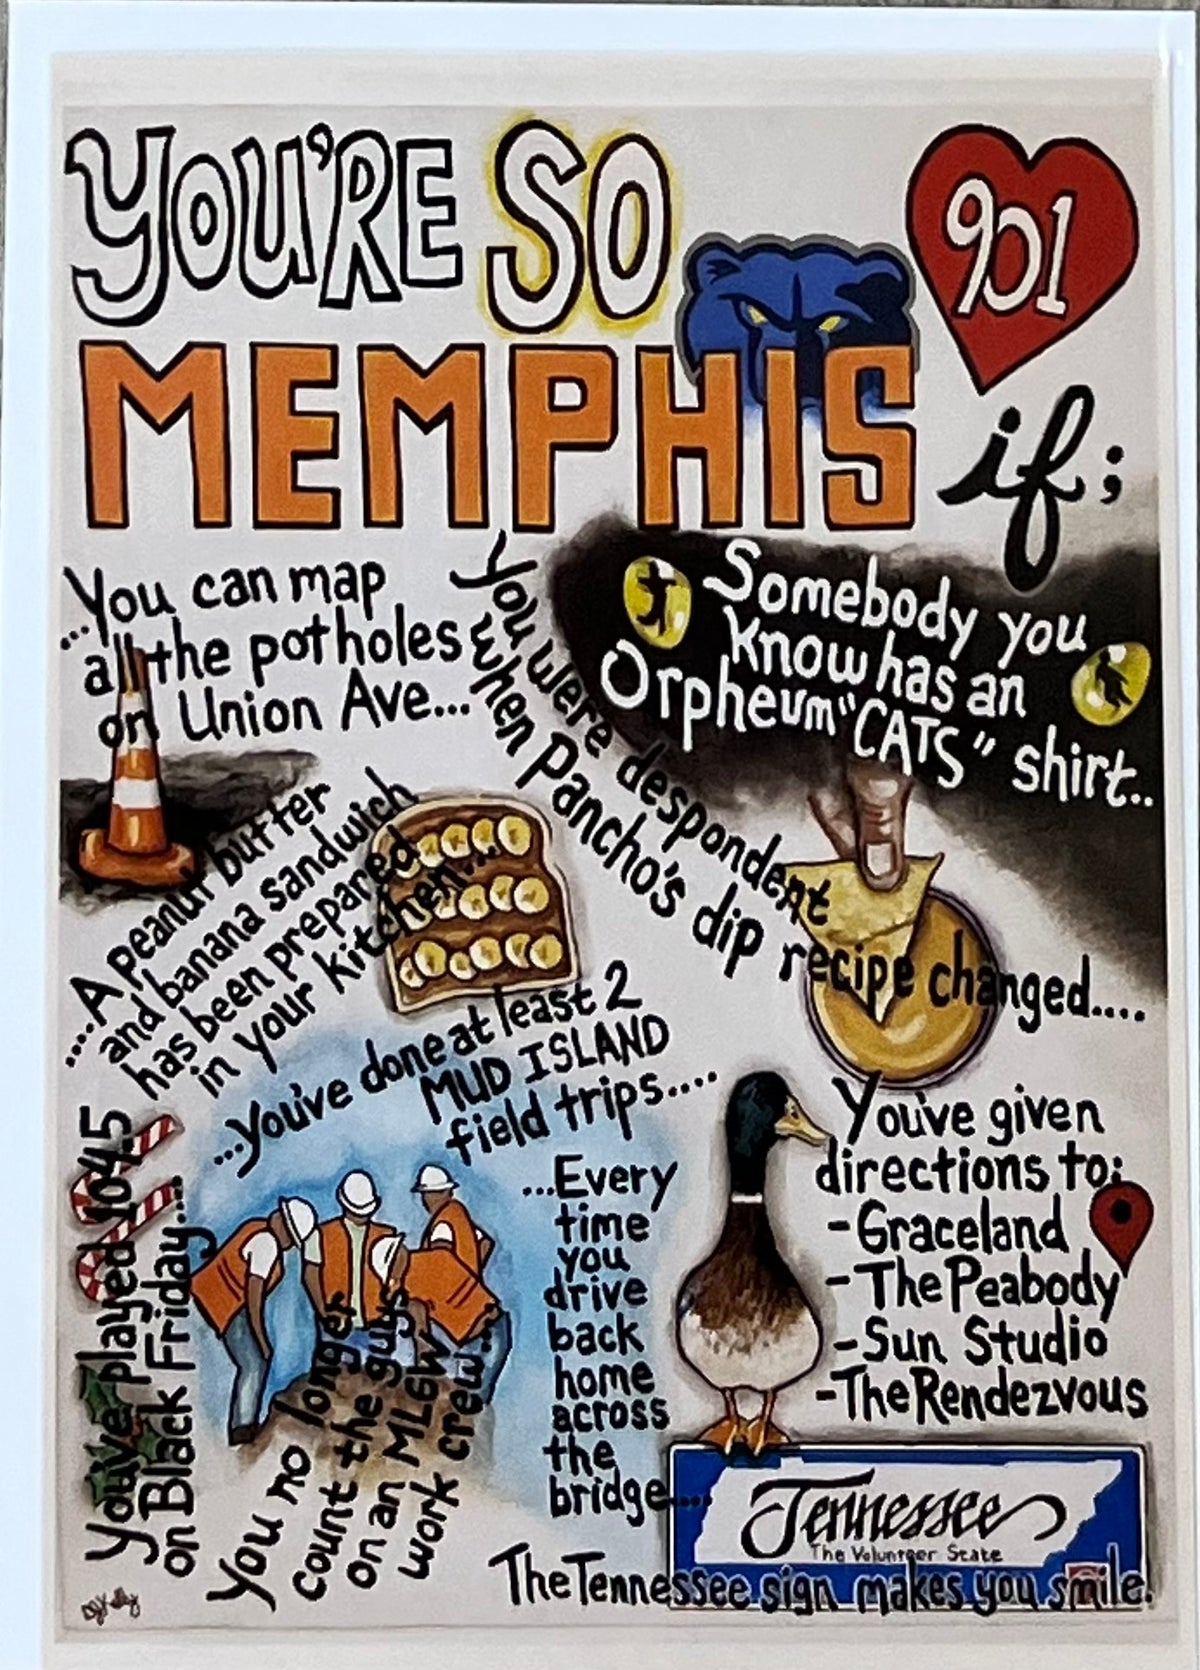 YOU'RE SO
901
MEMPHIS
if;
...You can map
all the potholes
on Union Ave...
You were despondent
when Pancho's dip recipe changed....
Somebody you
know has an
Orpheum "CATS" shirt..
....A peanut butter
and banana sandwich
has been prepared
in your kitchen...
...You've done at least 2
MUD ISLAND
field trips....
You've played 104.5
on Black Friday....
You no longer
count the guys
on an MLGW
work crew...
...Every
time
you
drive
back
home
across
the
bridge....
The Tennessee sign makes you smile.
You've given
directions to:
-Graceland
-The Peabody
-Sun Studio
-The Rendezvous
Tennessee
The Volunteer State
DJKelly